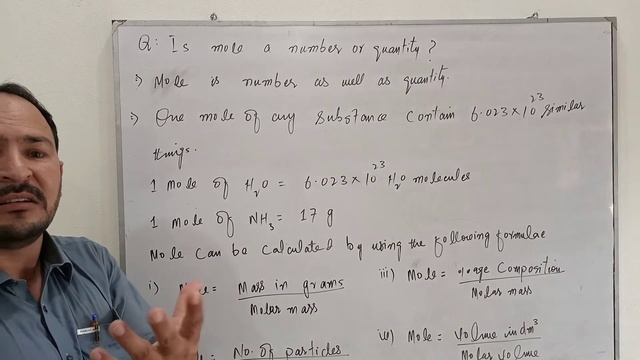 Q: Is mole a number or quantity?
⇒ Mole is number as well as quantity.
⇒ One mole of any substance contain 6.023×10²³ similar
things.
1 mole of H₂O = 6.023×10²³ H₂O molecules
1 mole of NH₃ = 17 g
Mole can be calculated by using the following formulae
i) = Mass in grams / Molar mass
iii) Mole = %age Composition / Molar mass
= No. of particles
iv) Mole = Volume in dm³ / Molar volume